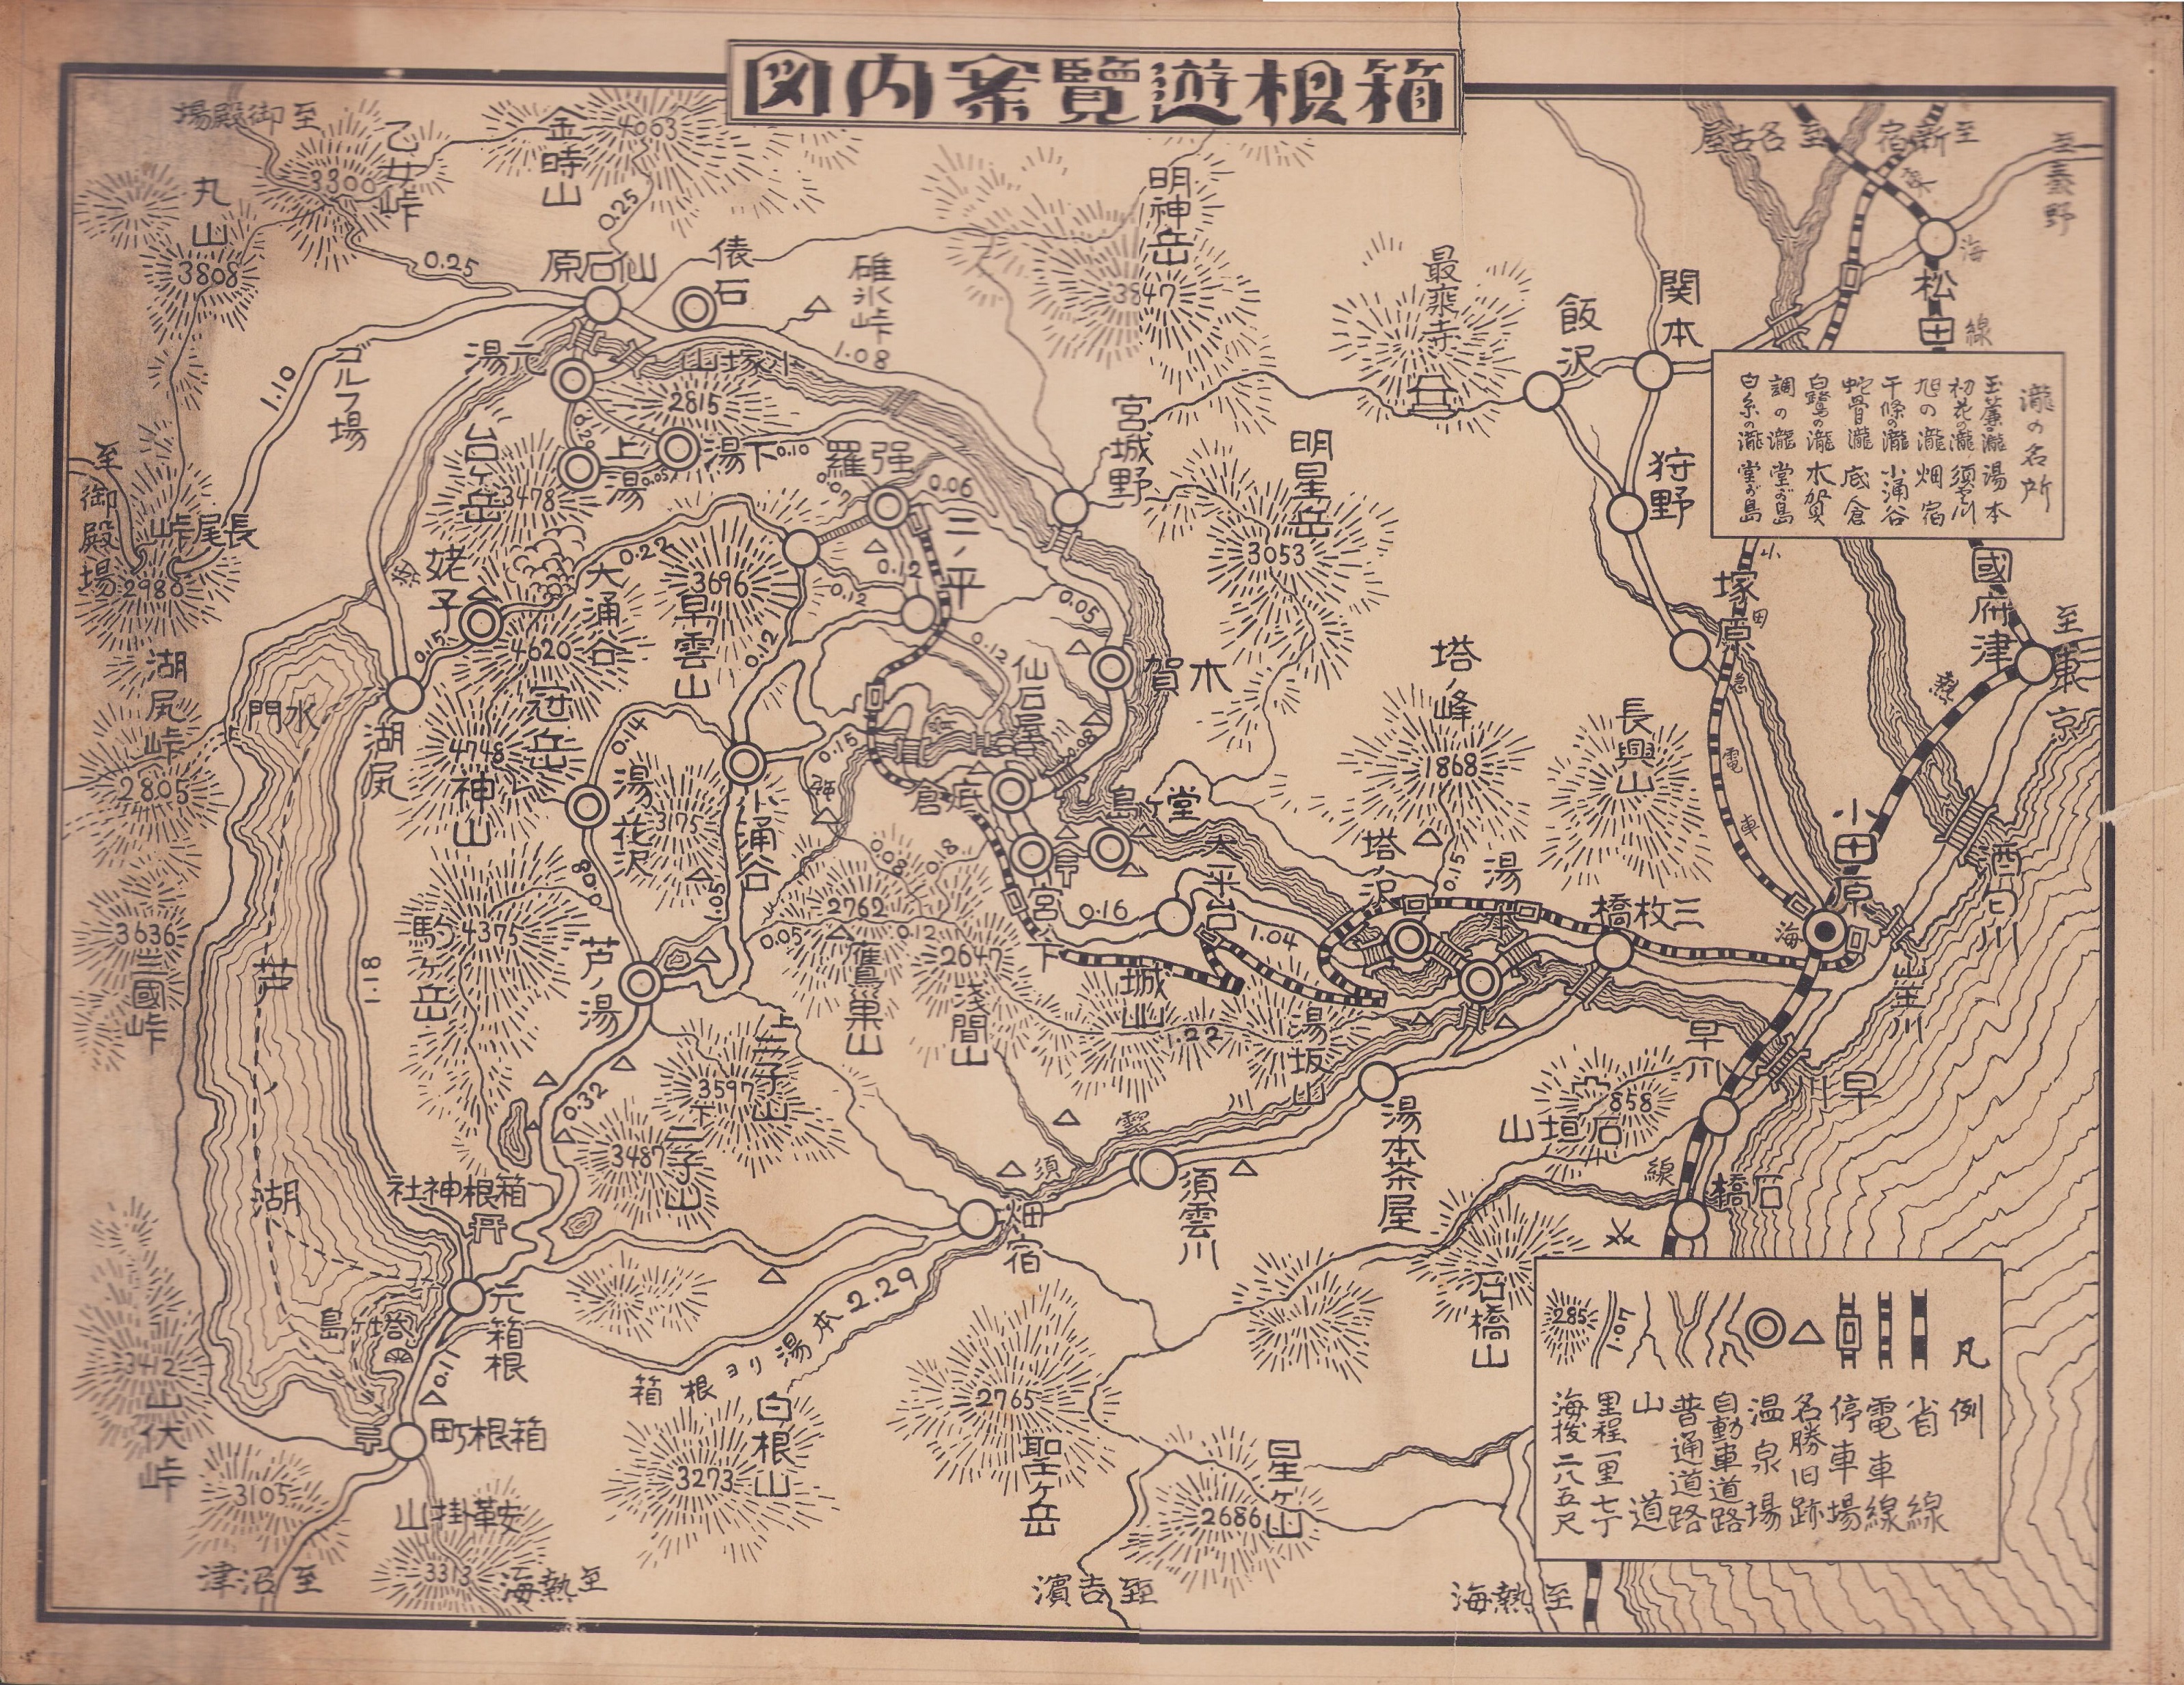 箱根遊覽案内図
至御殿場
乙女峠
3300
金時山
4063
丸山
3808
0.25
0.25
仙石原
俵石
碓氷峠
1.08
明神岳
3847
最乗寺
飯沢
関本
至名古屋
至新宿
至秦野
東
海
線
松田
瀧の名所
玉簾の瀧 湯本
初花の瀧 須雲川
旭の瀧 畑宿
千條の瀧 小涌谷
蛇骨瀧 底倉
白鷺の瀧 木賀
調の瀧 堂が島
白糸の瀧 堂が島
1.10
ゴルフ場
元湯
小塚山
2815
0.29
上湯
下湯
0.05
0.10
台ヶ岳
3478
強羅
0.07
0.06
宮城野
明星岳
3053
狩野
至御殿場
長尾峠
2980
姥子
0.15
大涌谷
4620
0.22
3696
早雲山
二ノ平
0.12
0.12
0.12
0.12
0.05
仙石屋
木賀
塔ノ峰
1868
長興山
小
田
急
電
車
塚原
國府津
至東京
熱
湖尻峠
2805
水門
湖尻
冠岳
4748
神山
0.14
湯花沢
3175
小涌谷
0.15
底倉
0.08
堂ヶ島
宮ノ下
0.08
0.18
大平台
0.16
1.04
塔ノ沢
0.15
湯本
三枚橋
小田原
海
酒匂川
山王川
3636
三國峠
芦
湖
8.1.1
駒ヶ岳
4375
0.08
芦ノ湯
1.05
0.05
2762
鷹巣山
0.12
2647
浅間山
城山
1.22
湯坂山
早川
早川
858
石垣山
線
石橋
上二子山
3597
下二子山
3487
0.32
箱根神社
須
雲
川
湯本茶屋
須雲川
畑宿
元箱根
塔ヶ島
0.11
箱根町
箱根ヨリ湯本2.29
白根山
3273
2765
聖ヶ岳
星ヶ山
2686
石橋山
3412
山伏峠
3105
鞍掛山
3313
至沼津
至熱海
至吉濱
至熱海
凡例
省線
電車線
停車場
名勝旧跡
温泉場
自動車道路
普通道路
山道
1.07
里程一里七丁
285
海抜二八五尺